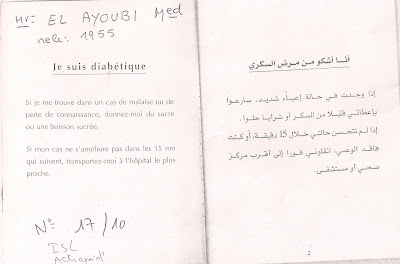 Mr: EL AYOUBI Med
nele: 1955
Je suis diabétique
Si je me trouve dans un cas de malaise ou de
perte de connaissance, donnez-moi du sucre
ou une boisson sucrée.
Si mon cas ne s'améliore pas dans les 15 mn
qui suivent, transportez-moi à l'hôpital le plus
proche.
N° 17/10
ISL
أنا أشكو من مرض السكري
إذا وجدت في حالة إعياء شديد، سارعوا
بإعطائي قليلا من السكر أو شرابا حلوا.
إذا لم تتحسن حالتي خلال 15 دقيقة، أو كنت
فاقد الوعي، انقلوني فورا إلى أقرب مركز
صحي أو مستشفى.
2